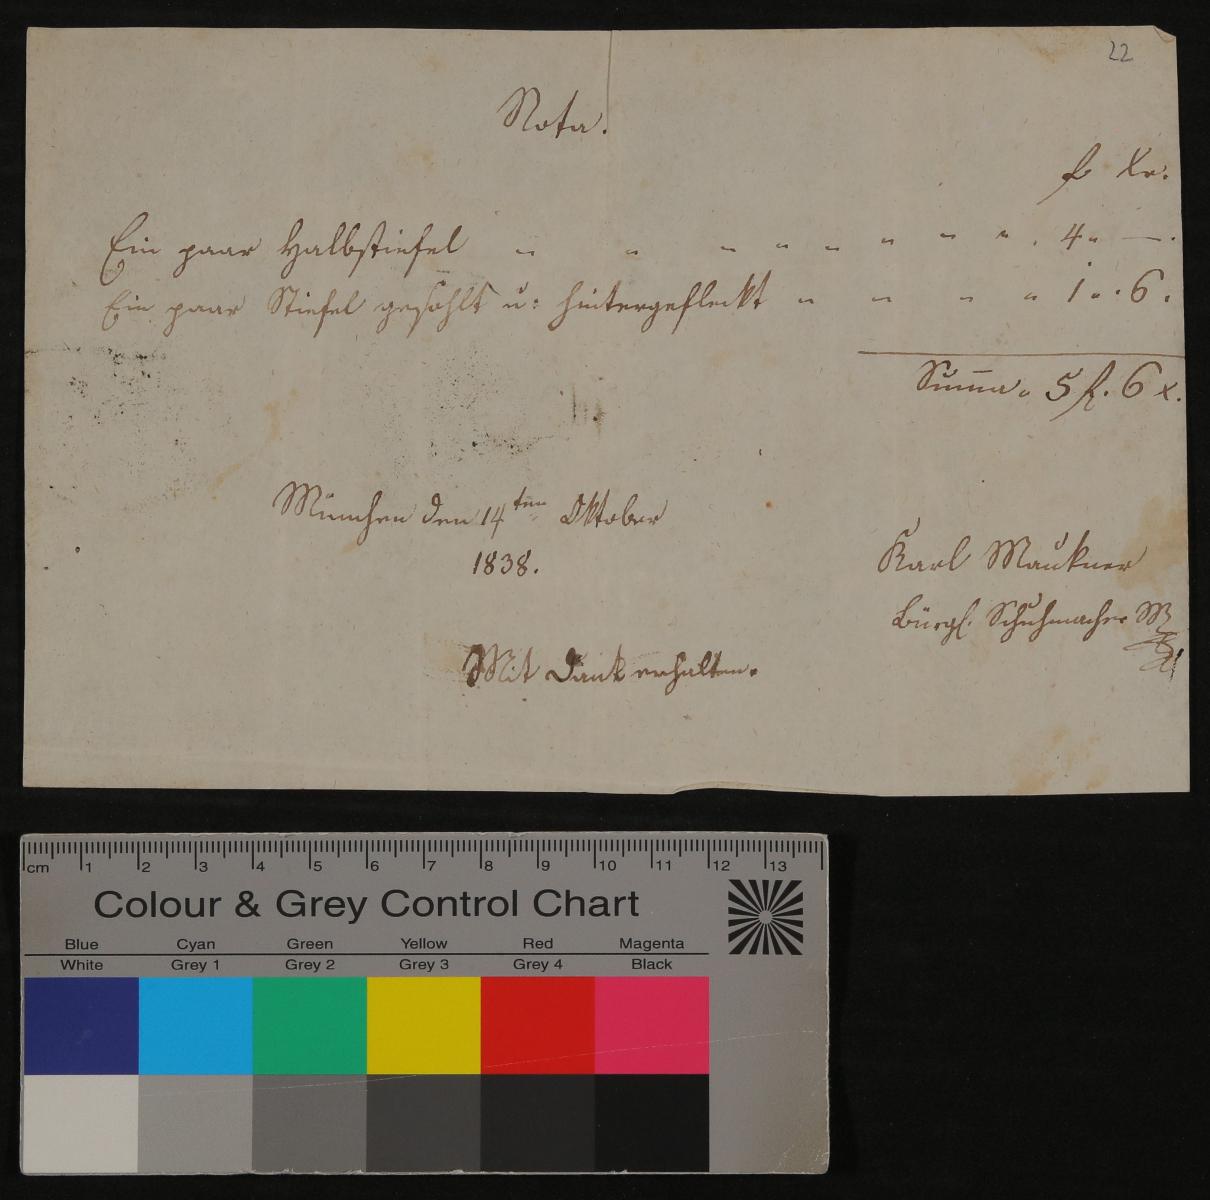 22
Nota.
f Xr.
Ein paar Halbstiefel " " " " " " " " " . 4 " — .
Ein paar Stiefel gesohlt u: hintergefleckt " " " " 1 " . 6 .
Summa " 5 f. 6 x.
München den 14ten Oktober
1838.
Karl Maukner
Bürgl. Schuhmacher
Mit Dank erhalten.
cm 1 2 3 4 5 6 7 8 9 10 11 12 13
Colour & Grey Control Chart
Blue Cyan Green Yellow Red Magenta
White Grey 1 Grey 2 Grey 3 Grey 4 Black